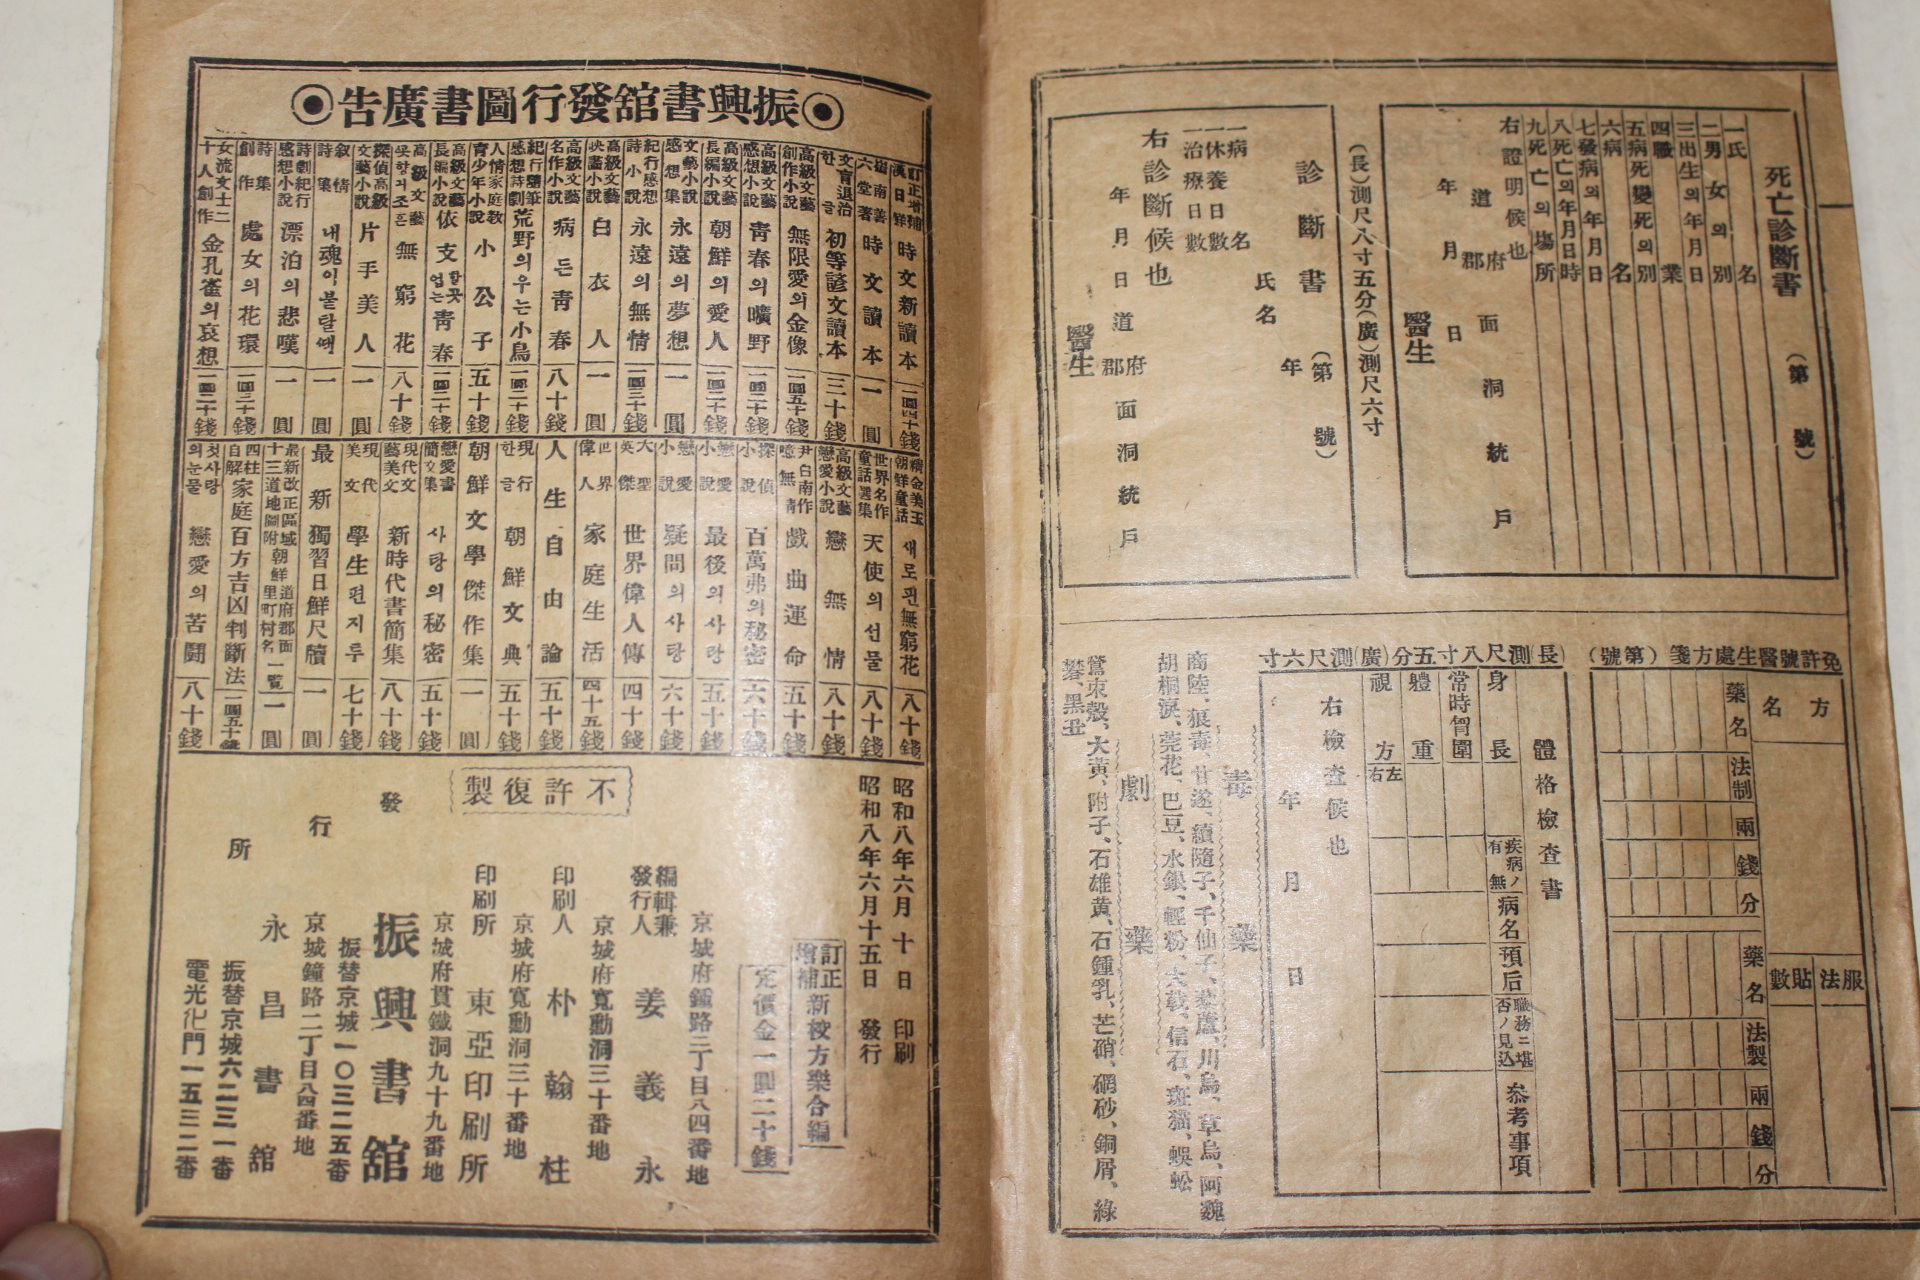 死亡診斷書
(第 號)
一氏 名
二男 女 의 別
三出生의年月日
四職 業
五病死變死의別
六病 名
七發病의年月日
八死亡의年月日時
九死亡의場所
右證明候也
年 月 日
道 府郡 面 洞 統 戶
醫生
(長)測尺八寸五分(廣)測尺六寸
診斷書
(第 號)
氏名
年
一病名
一休養日數
一治療日數
右診斷候也
年 月 日
道 府郡 面 洞 統 戶
醫生
免許號醫生處方箋(第 號)
方名
服法
貼數
藥名
法制
兩
錢
分
藥名
法製
兩
錢
分
(長)測尺八寸五分(廣)測尺六寸
體格檢査書
身長
常時胷圍
體重
視方
左右
疾病ノ有無
病名
預后
職務ニ堪否ノ見込
參考事項
右檢査候也
年 月 日
毒藥
商陸、狼毒、甘遂、續隨子、千仙子、藜蘆、川烏、草烏、阿魏
胡桐淚、莞花、巴豆、水銀、輕粉、大戟、信石、斑猫、蜈蚣
劇藥
鶯栗殼、大黃、附子、石雄黃、石鍾乳、芒硝、硇砂、銅屑、綠
礬、黑丑
振興書舘發行圖書廣告
訂正增補 漢日鮮 時文新讀本 一圓四十錢
崔南善 六堂著 時文讀本 一圓
文盲退治 한글 初等諺文讀本 三十錢
高級文藝 創作小說 無限愛의金像 一圓五十錢
高級文藝 感想小說 靑春의曠野 一圓二十錢
高級文藝 長編小說 朝鮮의愛人 一圓二十錢
文藝小說 感想集 永遠의夢想 一圓
紀行感想 詩小說 永遠의無情 一圓三十錢
高級文藝 映畵小說 白衣人 一圓
高級文藝 名作小說 病든靑春 八十錢
紀行隨筆 感想詩劇 荒野의우는小鳥 一圓二十錢
人情家庭敎 靑少年小說 小公子 五十錢
高級文藝 長編小說 依支할곳업는靑春 一圓二十錢
高級文藝 못항긔조흔 無窮花 八十錢
探偵高級 文藝小說 片手美人 一圓
敍情 詩集 내魂이불탈때 一圓
詩劇紀行 感想小說 漂泊의悲嘆 一圓
詩集 創作 處女의花環 一圓三十錢
女流文士二十人創作 金孔雀의哀想 一圓二十錢
精金美玉 朝鮮童話 새로핀無窮花 八十錢
世界名作 童話選集 天使의선물 八十錢
高級文藝 戀愛小說 戀無情 八十錢
尹白南作 噫無情 戱曲運命 五十錢
探偵小說 百萬弗의秘密 六十錢
戀愛小說 最後의사랑 五十錢
戀愛小說 疑問의사랑 六十錢
大聖英傑 世界偉人傳 四十錢
世界偉人 家庭生活 四十五錢
人生自由論 五十錢
現行한글 朝鮮文典 五十錢
朝鮮文學傑作集 一圓
戀愛書簡文集 사랑의秘密 五十錢
現代文藝美文 新時代書簡集 八十錢
現代美文 學生편지투 七十錢
最新獨習日鮮尺牘 一圓
最新改正區域朝鮮道府郡面 十三道地圖附里町村名一覽 一圓
四柱自解 家庭百方吉凶判斷法 一圓五十錢
첫사랑의눈물 戀愛의苦鬪 八十錢
昭和八年六月十日 印刷
昭和八年六月十五日 發行
訂正增補 新校方藥合編
定價金一圓二十錢
不許復製
京城府鍾路二丁目八四番地
編輯兼發行人 姜義永
京城府寬勳洞三十番地
印刷人 朴翰柱
京城府寬勳洞三十番地
印刷所 東亞印刷所
京城府貫鐵洞九十九番地
發行所
振興書舘
振替京城一〇三二五番
京城鐘路二丁目八四番地
永昌書舘
振替京城六二三一番
電光化門一五三二番